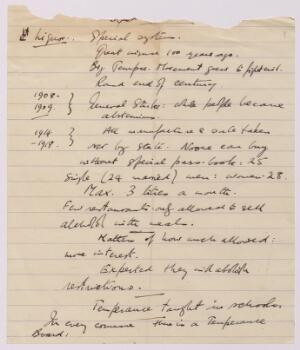 Liquor. Special system.
Great misuse 100 years ago.
Big Temper. Movement grew to fight evil.
Round end of century
1908- } General Strike: whole people became
1909. } abstemious.
1914 } All manufacture & sale taken
-1918. } over by State. No one can buy
without special pass-book: 25
single (24 married) men: women 28.
Max. 3 litres a month.
Few restaurants only allowed to sell
alcohol with meals.
Matter of how much allowed:
more interest.
Expected they will abolish
restrictions.
Temperance taught in schools.
In every commune there is a Temperance
Board.